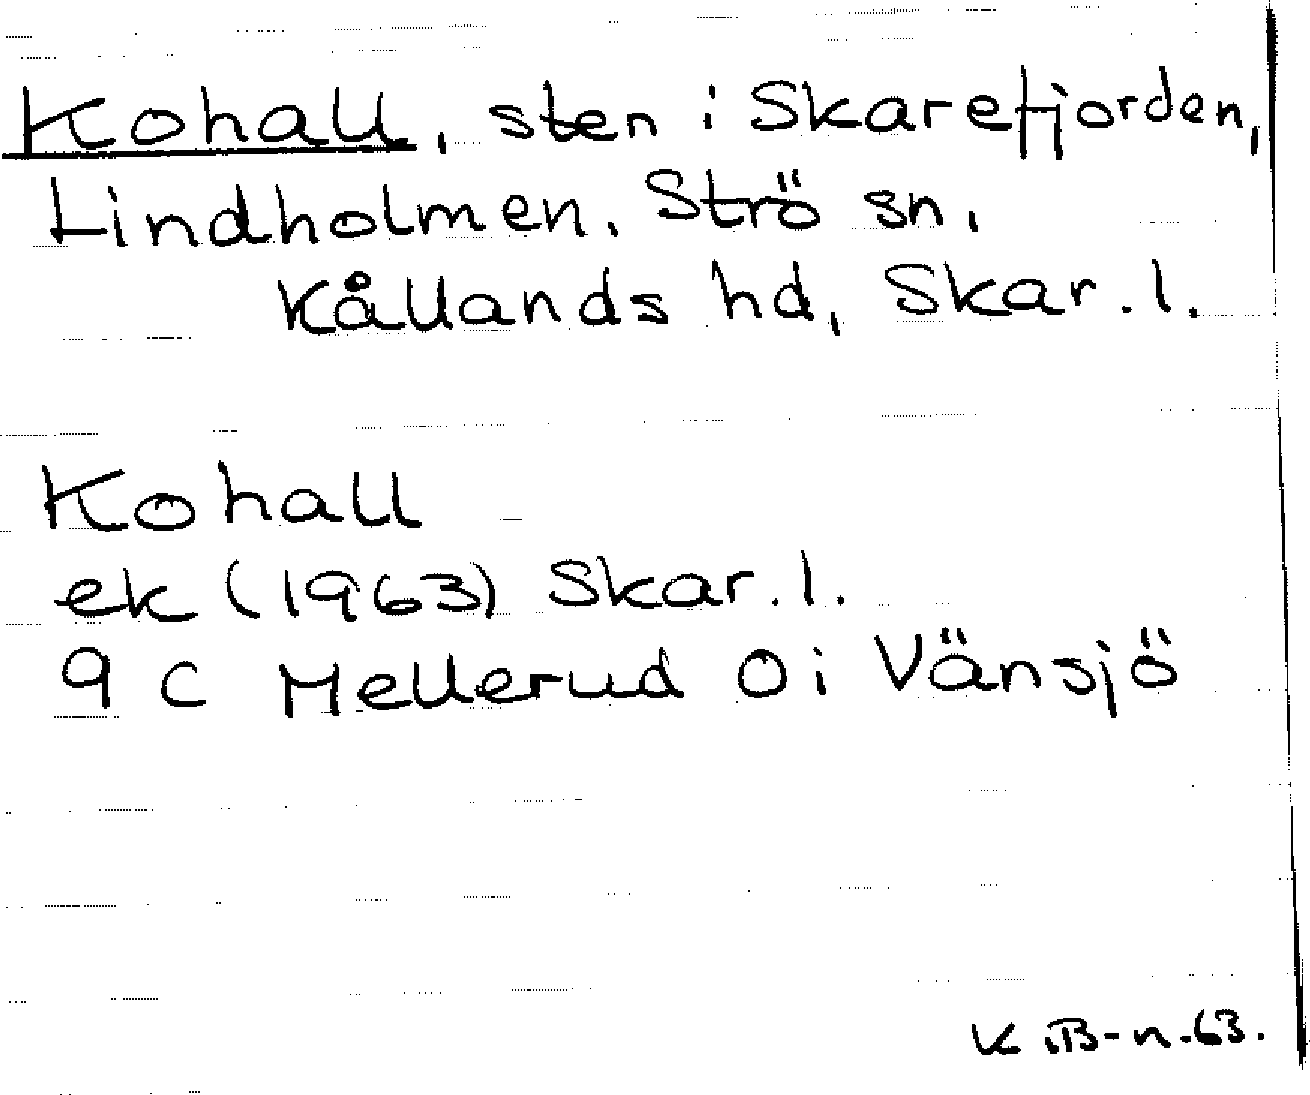 Kohall, sten i Skarefjorden,
Lindholmen. Strö sn,
Kållands hd, Skar. l.
Kohall
ek (1963) Skar. l.
9 C Mellerud Ö i Vänsjö
K iB-n. 63.